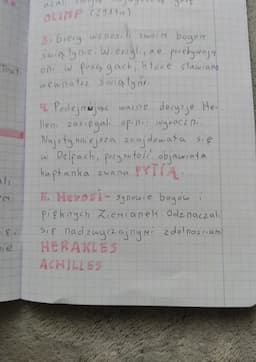 OLIMP (2917m)
3. Grecy wznosili swoim bogom
świątynie. Wierzyli, że przebywają
oni w posągach, które stawiano
wewnątrz świątyni.
4. Podejmując ważne decyzje He-
lleni zasięgali opinii wyroczni.
Najsłynniejsza znajdowała się
w Delfach, przyszłość objawiała
kapłanka zwana PYTIĄ.
5. Herosi - synowie bogów i
pięknych Ziemianek. Odznaczali
się nadzwyczajnymi zdolnościami
HERAKLES
ACHILLES